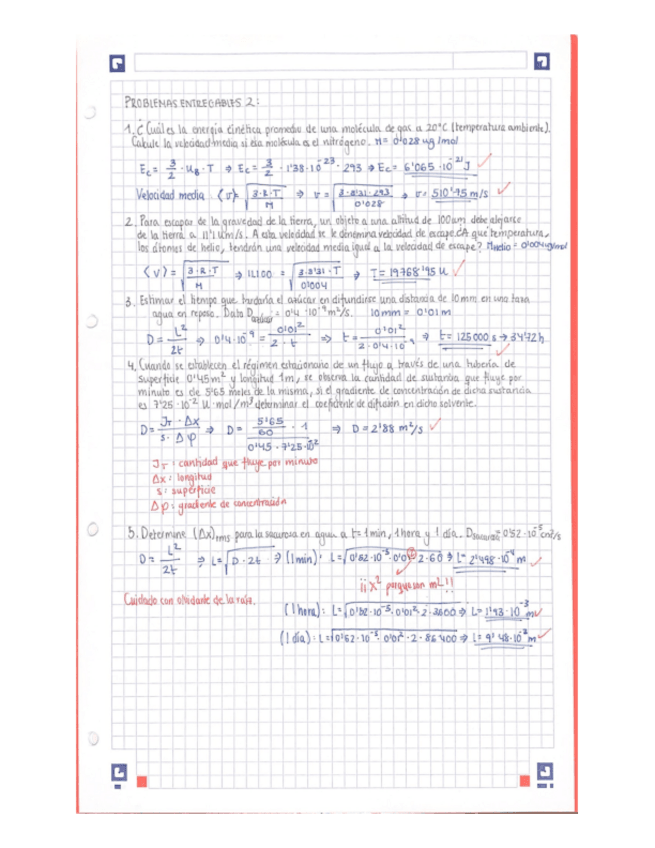 PROBLEMAS ENTREGABLES 2:
1. ¿Cuál es la energía cinética promedio de una molécula de gas a 20°C (temperatura ambiente).
Calcule la velocidad media si esa molécula es el nitrógeno. M= 0'028 kg/mol
Ec = 3/2 · KB · T ⇒ Ec = 3/2 · 1'38·10^-23 · 293 ⇒ Ec = 6'065·10^-21 J
Velocidad media (v)= √(3·R·T/M) ⇒ v = √(3·8'31·293/0'028) ⇒ v= 510'75 m/s
2. Para escapar de la gravedad de la tierra, un objeto a una altitud de 100km debe alejarse
de la tierra a 11'1 km/s. A esta velocidad se le denomina velocidad de escape. ¿A que temperatura,
los átomos de helio, tendrán una velocidad media igual a la velocidad de escape? Mhelio = 0'004kg/mol
⟨v⟩ = √(3·R·T/M) ⇒ 11100 = √(3·8'31·T/0'004) ⇒ T= 19768'95 K
3. Estimar el tiempo que tardaría el azúcar en difundirse una distancia de 10mm en una taza
agua en reposo. Dato D azúcar = 0'4·10^-9 m²/s. 10mm = 0'01m
D = L²/2t ⇒ 0'4·10^-9 = 0'01²/2·t ⇒ t = 0'01²/2·0'4·10^-9 ⇒ t= 125000 s → 34'72h
4. Cuando se establecen el régimen estacionario de un flujo a través de una tubería de
superficie 0'45m² y longitud 1m, se observa la cantidad de sustancia que fluye por
minuto es de 5'65 moles de la misma, si el gradiente de concentración de dicha sustancia
es 7'25·10^-2 K·mol/m³ determinar el coeficiente de difusión en dicho solvente.
D = JT·Δx/S·Δρ ⇒ D = (5'65/60 · 1)/(0'45·7'25·10^2) ⇒ D = 2'88 m²/s
JT: cantidad que fluye por minuto
Δx: longitud
S: superficie
Δρ: gradiente de concentración
5. Determine (Δx)rms para la sacarosa en agua a t=1min, 1hora y 1 día. Dsacarosa = 0'52·10^-5 cm²/s
D = L²/2t ⇒ L = √D·2t ⇒ (1min): L=√0'52·10^-5·0'01²·2·60 ⇒ L= 2'498·10^-4 m
¡¡x² porque son m²!!
Cuidado con olvidarte de la raíz.
(1 hora): L=√0'52·10^-5·0'01²·2·3600 ⇒ L= 1'93·10^-3 m
(1 día): L=√0'52·10^-5·0'01²·2·86400 ⇒ L= 9'48·10^-3 m